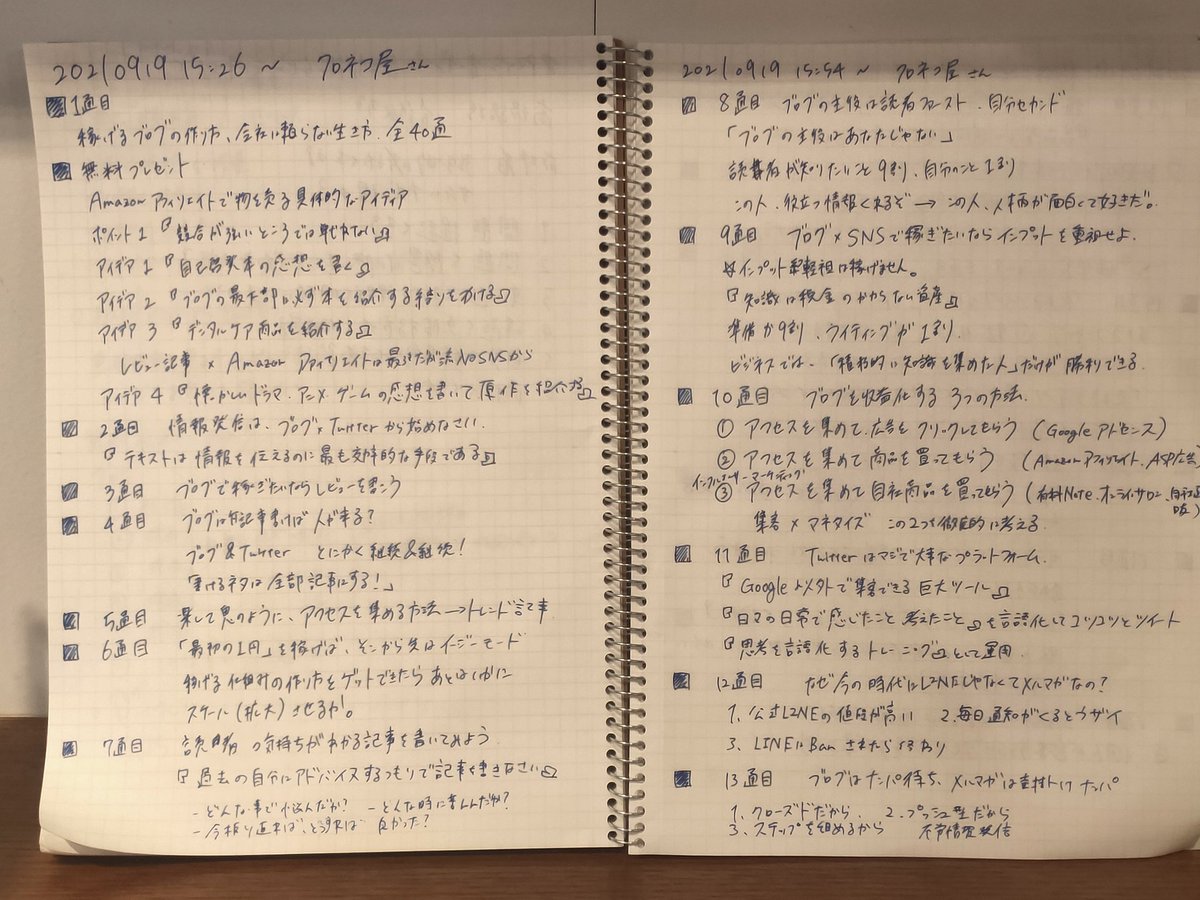 20210919 15:26 ~ クロネコ屋さん
1通目
稼げるブログの作り方、会社に頼らない生き方 全40通
無料プレゼント
Amazonアフィリエイトで物を売る具体的なアイディア
ポイント1 『競合が強いところでは戦わない』
アイデア1 『自己啓発本の感想を書く』
アイデア2 『ブログの最下部に必ず本を紹介する縛りをかける』
アイデア3 『デンタルケア商品を紹介する』
レビュー記事 × Amazonアフィリエイトは最強だが流入はSNSから
アイデア4 『懐かしいドラマ、アニメ、ゲームの感想を書いて原作を紹介する』
2通目 情報発信は、ブログ×Twitterから始めなさい.
『テキストは情報を伝えるのに最も効率的な手段である』
3通目 ブログで稼ぎたいならレビューを書こう
4通目 ブログは何記事書けば人が来る?
ブログ&Twitter とにかく継続&継続!
書けるネタは全部記事にする!」
5通目 果して鬼のように、アクセスを集める方法→トレンド記事
6通目 「最初の1円」を稼げば、そこから先はイージーモード
稼げる仕組みの作り方をゲットできたらあとはいかに
スケール(拡大)させるか。
7通目 読者の気持ちがわかる記事を書いてみよう
『過去の自分にアドバイスするつもりで記事を書きなさい』
- どんな事で悩んだか? - どんな時に喜んだか?
- 今振り返れば、どうすれば良かった?
20210919 15:54 ~ クロネコ屋さん
8通目 ブログの主役は読者ファースト、自分セカンド
「ブログの主役はあなたじゃない」
読者が知りたいこと9割、自分のこと1割
この人、役立つ情報くれるぞ → この人、人柄が面白くて好きだ。
9通目 ブログ×SNSで稼ぎたいならインプットを重視せよ.
※インプット軽視は稼げません。
『知識は税金のかからない資産』
準備が9割、ライティングが1割.
ビジネスでは、「積極的に知識を集めた人」だけが勝利できる.
10通目 ブログを収益化する3つの方法.
① アクセスを集めて、広告をクリックしてもらう (Googleアドセンス)
② アクセスを集めて商品を買ってもらう (Amazonアフィリエイト、ASP広告)
インフルエンサーマーケティング
③ アクセスを集めて自社商品を買ってもらう (有料Note、オンラインサロン、
集客×マネタイズ この2つを徹底的に考える.
11通目 Twitterはマジで大事なプラットフォーム.
『Google以外で集客できる巨大ツール』
『日々の日常で感じたこと 考えたこと』を言語化してコツコツとツイート
『思考を言語化するトレーニング』として運用.
12通目 なぜ今の時代にLINEじゃなくてメルマガなの?
1. 公式LINEの値段が高い 2. 毎日通知がくるとウザイ
3. LINEにBanされたら終わり
13通目 ブログはナンパ待ち、メルマガは直接トークナンパ
1. クローズドだから. 2. プッシュ型だから
3. ステップを組めるから